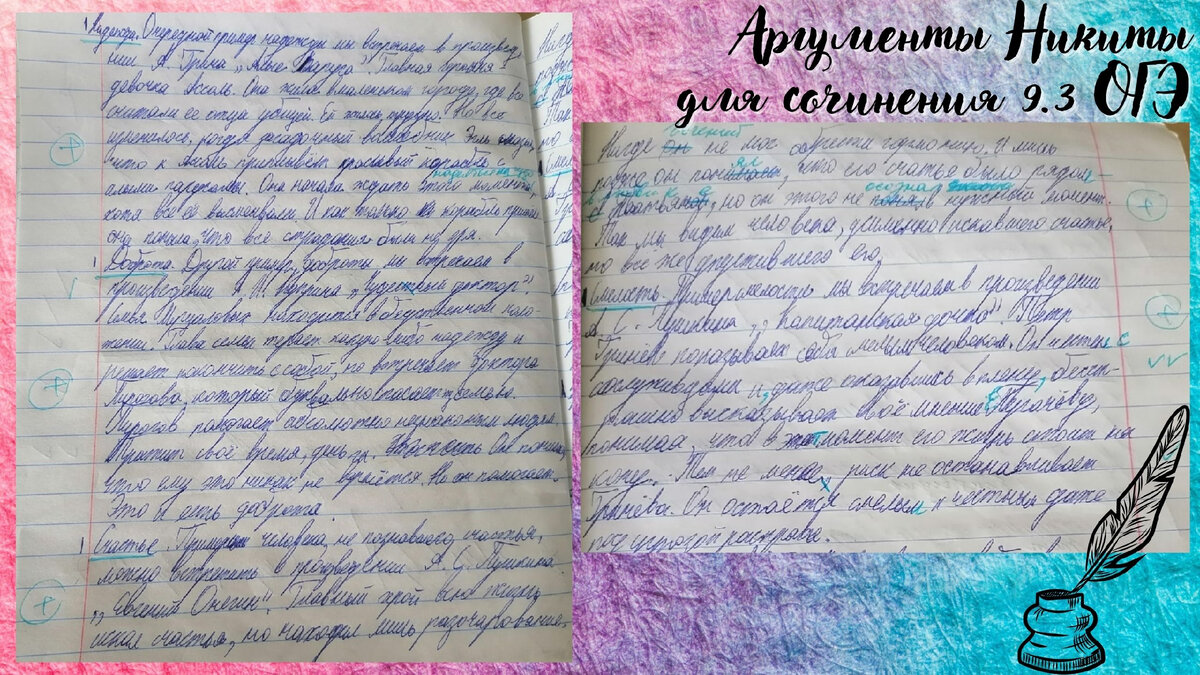 Аргументы Никиты
для сочинения 9.3 ОГЭ
Надежда. Очередной пример надежды мы встречаем в произведе-
нии А. Грина „Алые Паруса". Главная героиня
девочка Ассоль. Она жила в маленьком городе, где все
считали её отца убийцей. Ей жилось трудно. Но всё
изменилось, когда загадочный Эгль сказал,
что к Ассоль приплывёт красивый корабль с
алыми парусами. Она начала ждать этого момента,
хотя все её высмеивали. И как только корабль
она поняла, что все страдания были не зря.
Доброта. Другой пример доброты мы встречаем в
произведении А. И. Куприна „Чудесный доктор".
Семья Мерцаловых находится в бедственном поло-
жении. Глава семьи теряет какую либо надежду и
решает покончить с собой, но встречает доктора
Пирогова, который буквально спасает семью.
Пирогов помогает незнакомым людям.
Тратит своё время, деньги. Он понимал,
что ему это никак не вернётся. Но он помогает.
Это и есть доброта
Счастье. Примером человека, не познавшего счастья,
можно встретить в произведении А. С. Пушкина
„Евгений Онегин". Главный герой всю жизнь
искал счастья, но находил лишь разочарование.
Нигде Евгений не мог обрести гармонию. И лишь
позже он понял, что его счастье было рядом-
но он этого не осознал в нужный момент.
Так мы видим человека, длительно искавшего счастье,
но все же упустившего его.
Смелость. Пример смелости мы встречаем в произведении
А. С. Пушкина „Капитанская дочка". Пётр
Гринёв показывает себя смелым человеком. Он честен с
сослуживцами и, даже оказавшись в плену, бесст-
рашно высказывает своё мнение Пугачёву,
понимая, что в этот момент его жизнь стоит на
кону. Тем не менее, риск не останавливает
Гринёва. Он остаётся смелым и честным даже
под угрозой расправы.